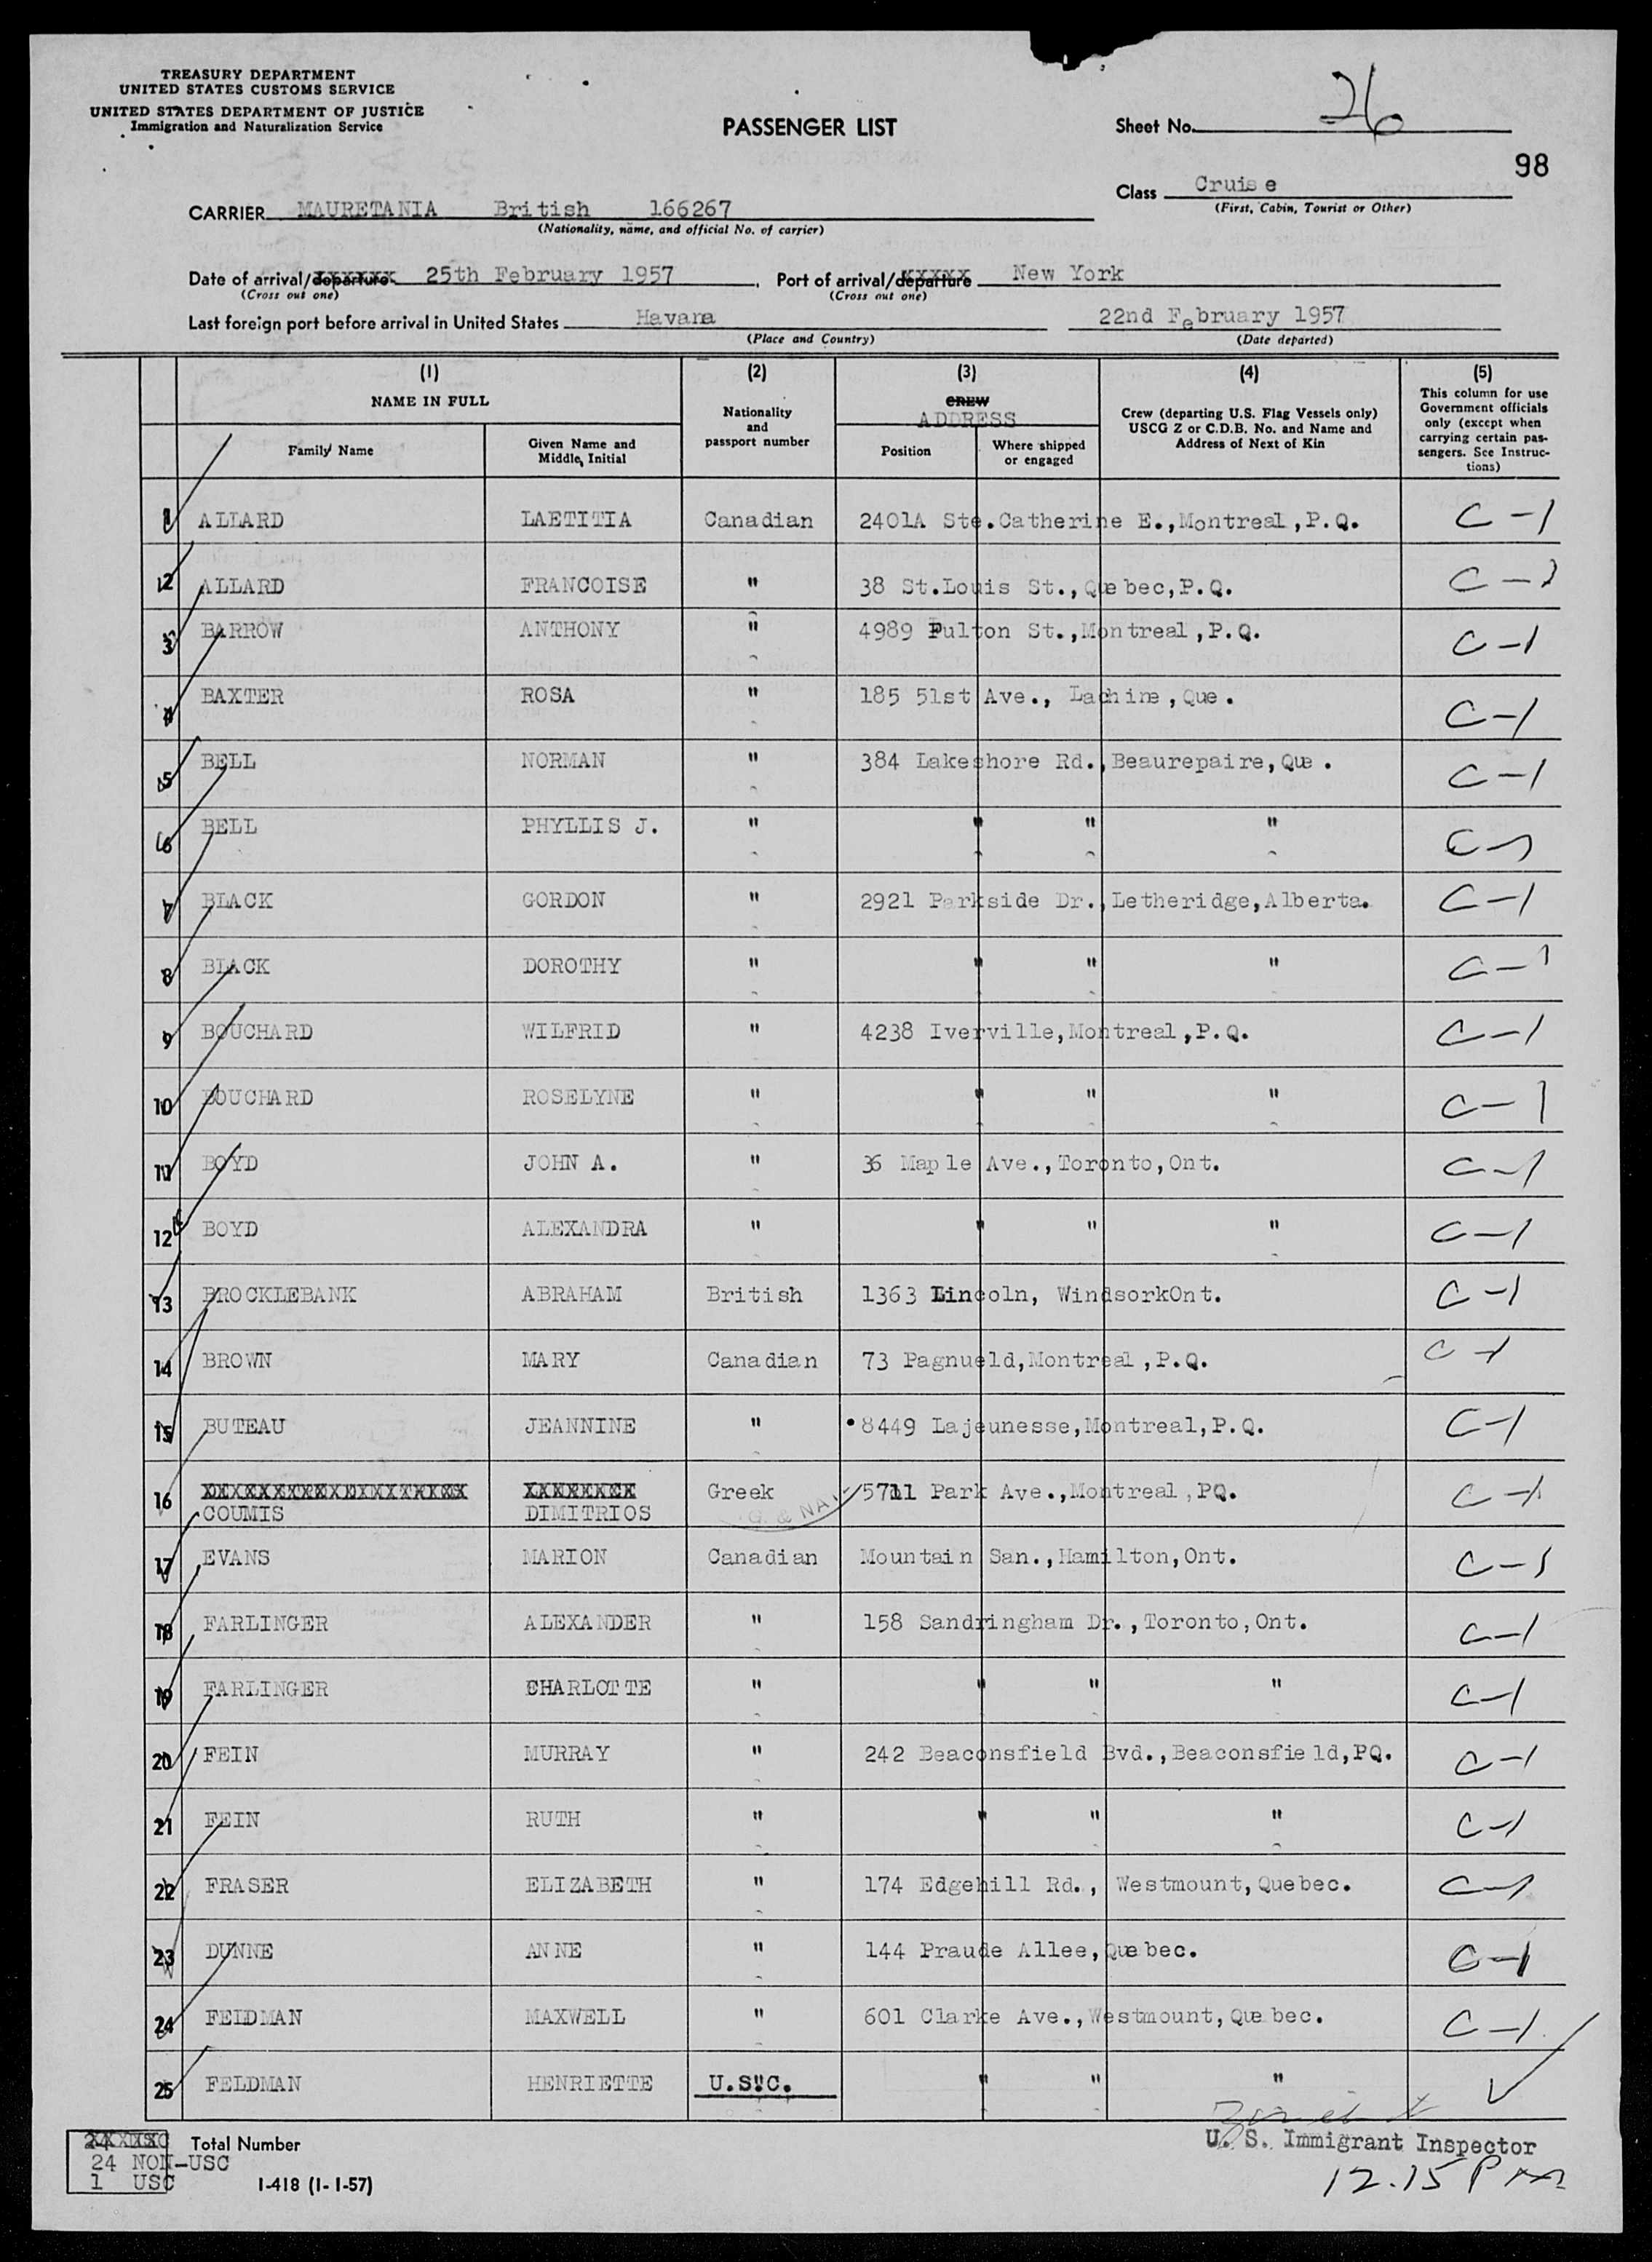 TREASURY DEPARTMENT
UNITED STATES CUSTOMS SERVICE
UNITED STATES DEPARTMENT OF JUSTICE
Immigration and Naturalization Service
PASSENGER LIST
Sheet No. 26
98
Class Cruise
(First, Cabin, Tourist or Other)
CARRIER MAURETANIA British 166267
(Nationality, name, and official No. of carrier)
Date of arrival/departure 25th February 1957, Port of arrival/departure New York
(Cross out one) (Cross out one)
Last foreign port before arrival in United States Havana 22nd February 1957
(Place and Country) (Date departed)
(1) (2) (3) (4) (5)
NAME IN FULL
Family Name
Given Name and Middle Initial
Nationality and passport number
CREW
ADDRESS
Position
Where shipped or engaged
Crew (departing U.S. Flag Vessels only) USCG Z or C.D.B. No. and Name and Address of Next of Kin
This column for use Government officials only (except when carrying certain passengers. See Instructions)
1 ALLARD LAETITIA Canadian 2401A Ste.Catherine E.,Montreal,P.Q. C-1
2 ALLARD FRANCOISE " 38 St.Louis St.,Quebec,P.Q. C-1
3 BARROW ANTHONY " 4989 Fulton St.,Montreal,P.Q. C-1
4 BAXTER ROSA " 185 51st Ave., Lachine,Que. C-1
5 BELL NORMAN " 384 Lakeshore Rd.,Beaurepaire,Que. C-1
6 BELL PHYLLIS J. " " " " C-1
7 BLACK GORDON " 2921 Parkside Dr.,Letheridge,Alberta. C-1
8 BLACK DOROTHY " " " " C-1
9 BOUCHARD WILFRID " 4238 Iverville,Montreal,P.Q. C-1
10 BOUCHARD ROSELYNE " " " " C-1
11 BOYD JOHN A. " 36 Maple Ave.,Toronto,Ont. C-1
12 BOYD ALEXANDRA " " " " C-1
13 BROCKLEBANK ABRAHAM British 1363 Lincoln, WindsorkOnt. C-1
14 BROWN MARY Canadian 73 Pagnueld,Montreal,P.Q. C-1
15 BUTEAU JEANNINE " 8449 Lajeunesse,Montreal,P.Q. C-1
16 COUMIS DIMITRIOS Greek 5711 Park Ave.,Montreal,PQ. C-1
17 EVANS MARION Canadian Mountain San.,Hamilton,Ont. C-1
18 FARLINGER ALEXANDER " 158 Sandringham Dr.,Toronto,Ont. C-1
19 FARLINGER CHARLOTTE " " " " C-1
20 FEIN MURRAY " 242 Beaconsfield Bvd.,Beaconsfield,PQ. C-1
21 FEIN RUTH " " " " C-1
22 FRASER ELIZABETH " 174 Edgehill Rd., Westmount,Quebec. C-1
23 DUNNE ANNE " 144 Praude Allee,Quebec. C-1
24 FELDMAN MAXWELL " 601 Clarke Ave.,Westmount,Quebec. C-1
25 FELDMAN HENRIETTE U.S.C. " " "
Total Number
24 NON-USC
1 USC
I-418 (1-1-57)
U. S. Immigrant Inspector
12.15 Pm